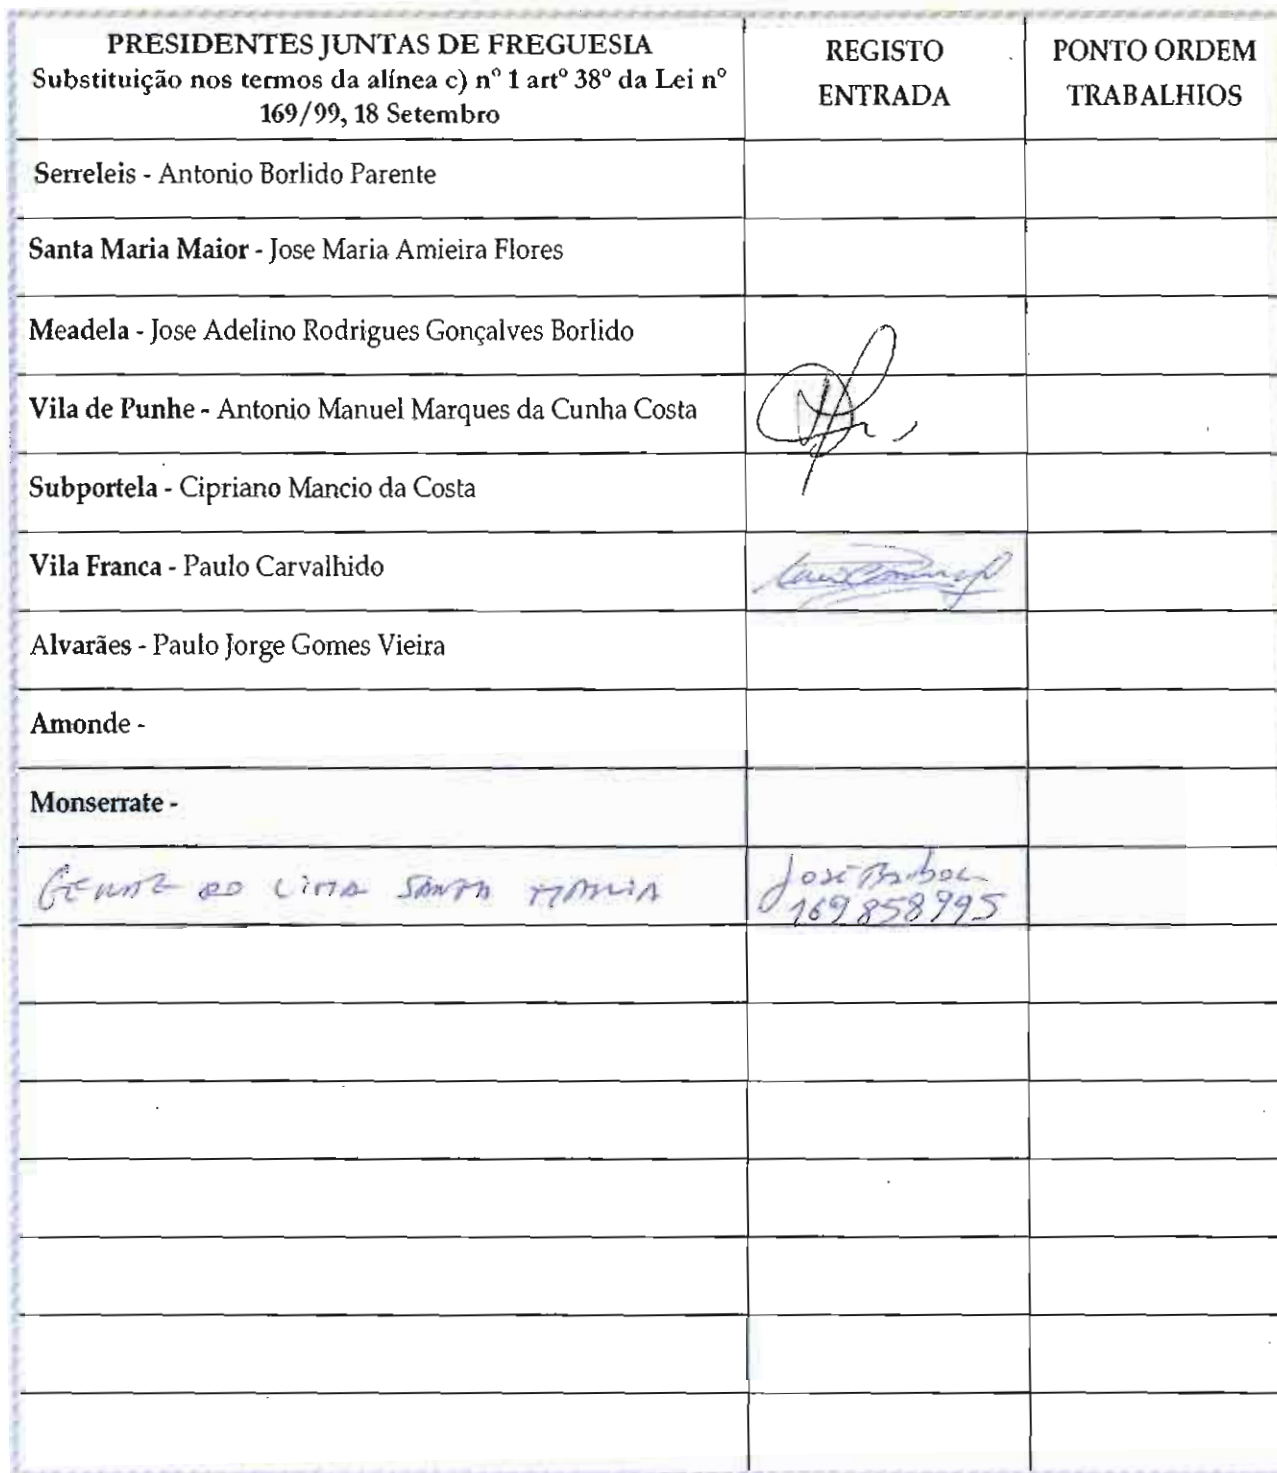 PRESIDENTES JUNTAS DE FREGUESIA
Substituição nos termos da alínea c) nº 1 artº 38º da Lei nº
169/99, 18 Setembro
REGISTO
ENTRADA
PONTO ORDEM
TRABALHIOS
Serreleis - Antonio Borlido Parente
Santa Maria Maior - Jose Maria Amieira Flores
Meadela - Jose Adelino Rodrigues Gonçalves Borlido
Vila de Punhe - Antonio Manuel Marques da Cunha Costa
Subportela - Cipriano Mancio da Costa
Vila Franca - Paulo Carvalhido
Alvarães - Paulo Jorge Gomes Vieira
Amonde -
Monserrate -
LIMA SANTA MARIA
José
169858995